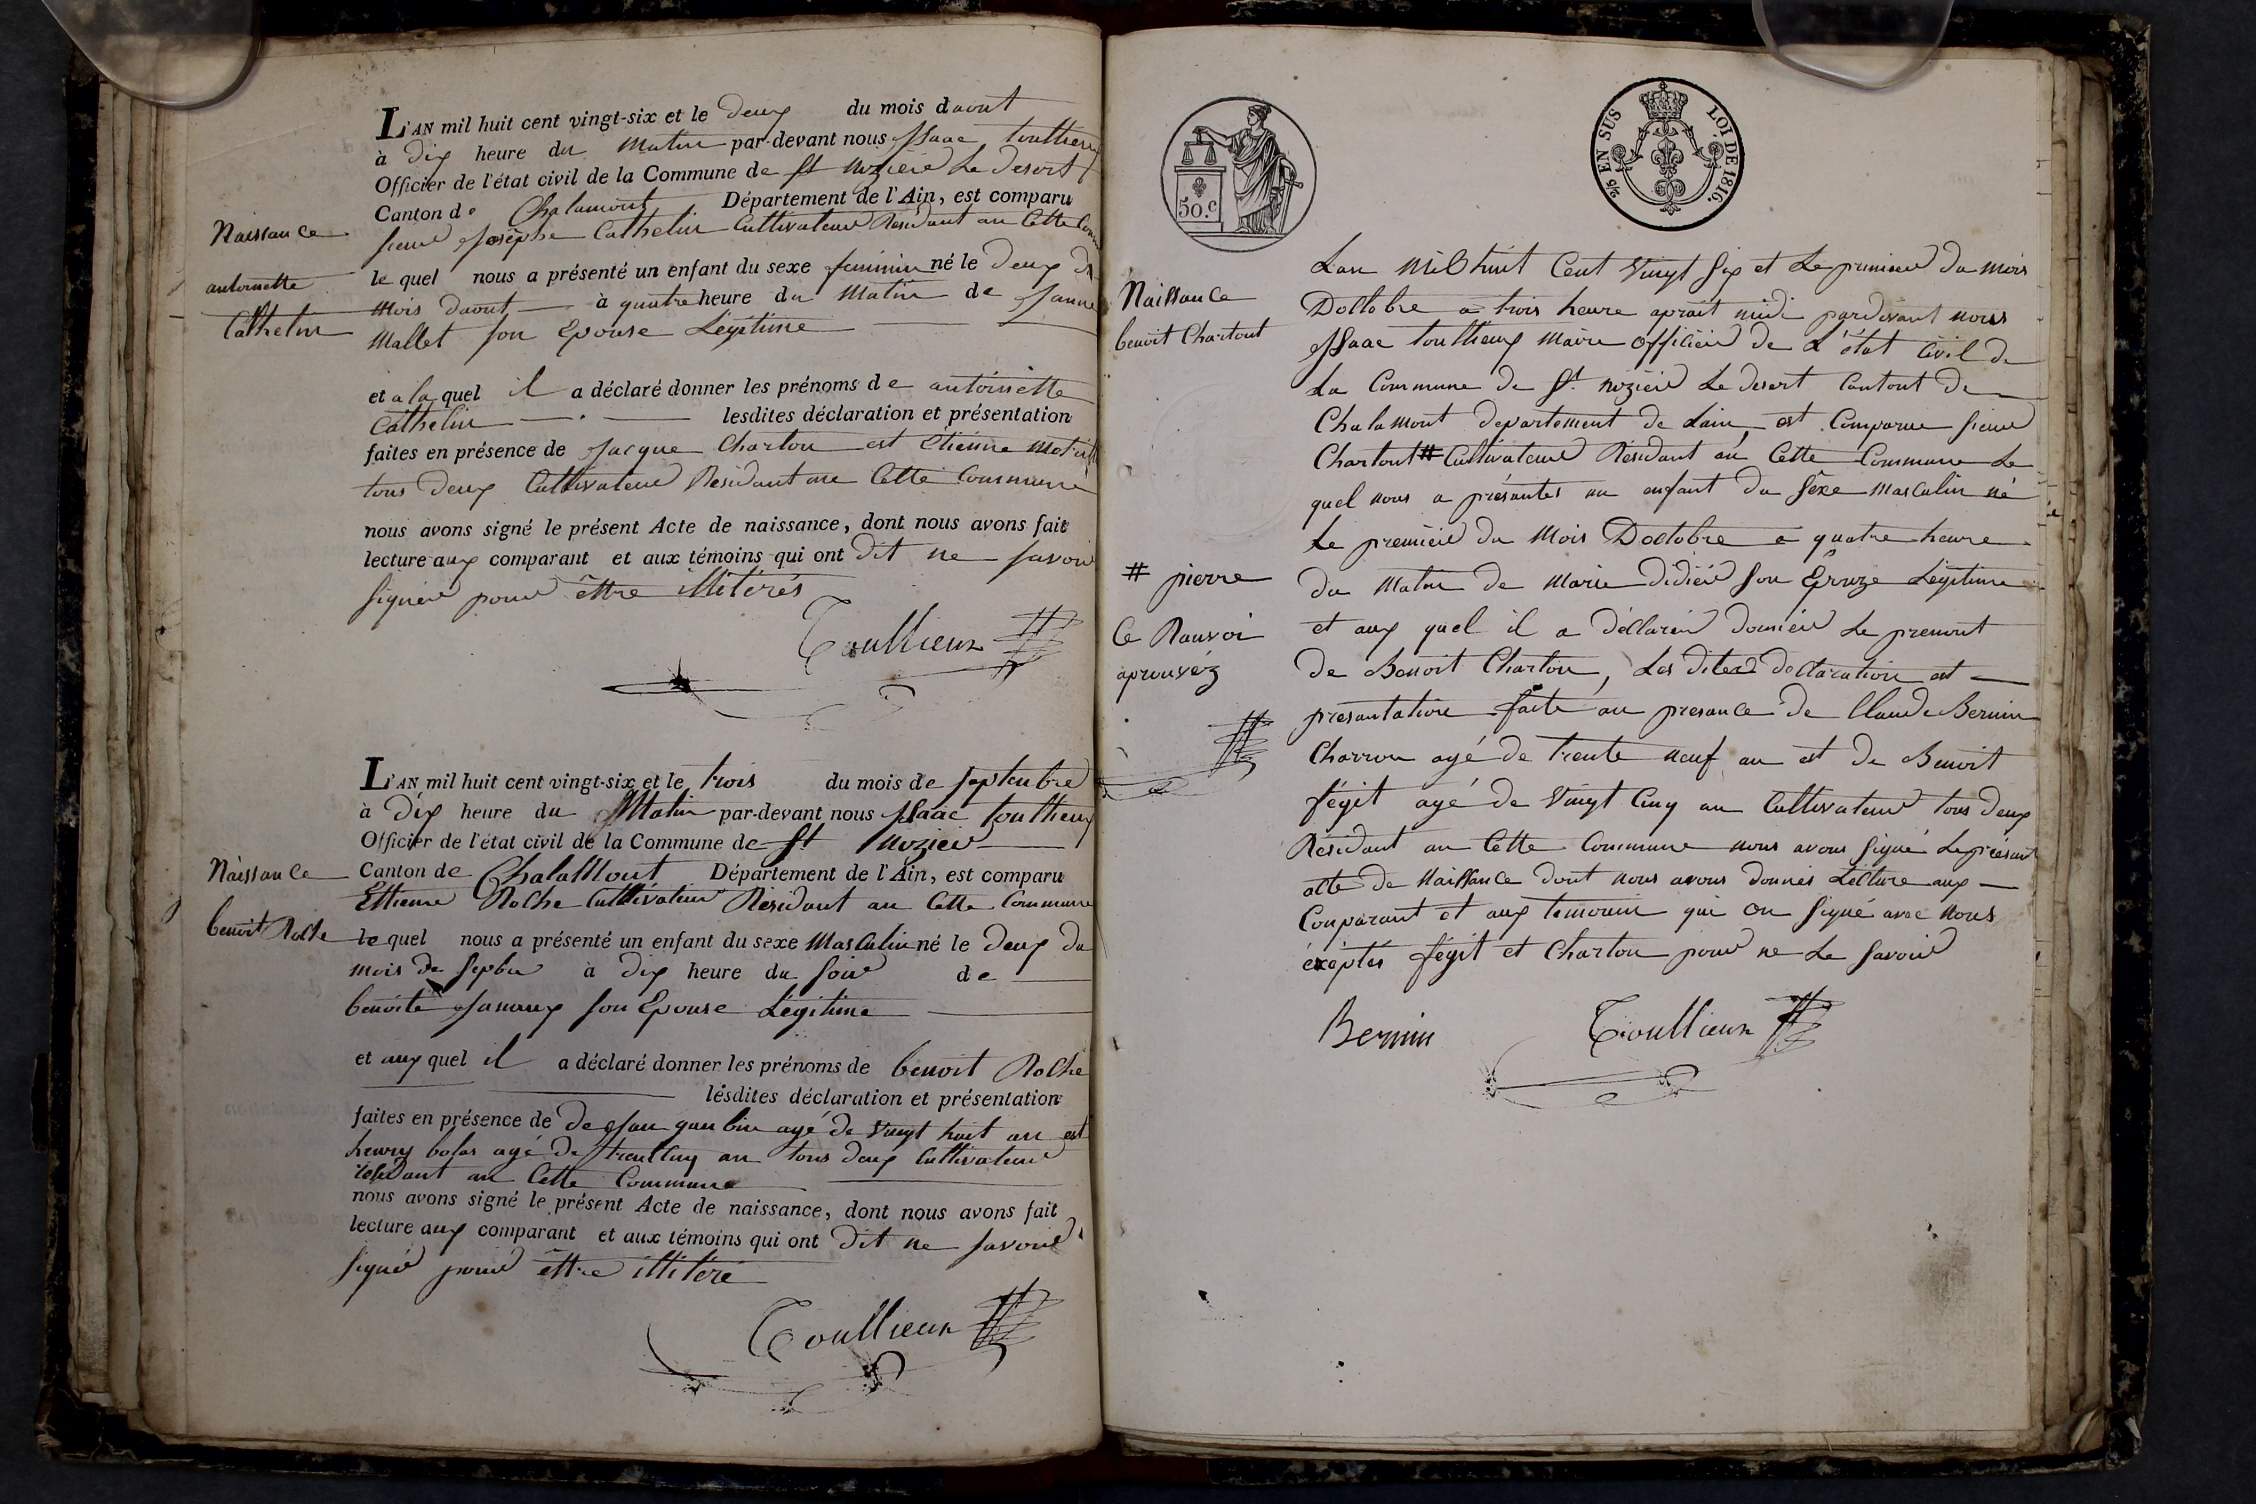 L'AN mil huit cent vingt-six et le deux du mois daout
à dix heure du matin par-devant nous Issaac toullieux
Officier de l'état civil de la Commune de St nizier Le desert
Canton de Chalamont Département de l'Ain, est comparu
sieur Josèphe Cathelin Cultivateur Résidant an Cette
Naissance
antoinette
Cathelin
le quel nous a présenté un enfant du sexe feminin né le deux du
mois daout à quatre heure du matin de Janne
Mallet son Epouse Légitime
et a la quel il a déclaré donner les prénoms de antoinette
Cathelin lesdites déclaration et présentation
faites en présence de Jacque Charton est étienne
tous deux Cultivateur Résidant an Cette Commune
nous avons signé le présent Acte de naissance, dont nous avons fait
lecture aux comparant et aux témoins qui ont dit ne savoir
signer pour êttre illitérés
Toullieux
L'AN mil huit cent vingt-six et le trois du mois de septenbre
à dix heure du Matin par-devant nous Issaac toullieux
Officier de l'état civil de la Commune de St nizier
Naissance
benoit Roche
Canton de Chalamont Département de l'Ain, est comparu
Ettienne Roche Cultivateur Résidant an Cette Commune
le quel nous a présenté un enfant du sexe Masculin né le deux du
mois de sepbre à dix heure du soir de
benoite Janaux son Epouse Légitime
et aux quel il a déclaré donner les prénoms de benoit Roche
lesdites déclaration et présentation
faites en présence de de Jan gaubin agé de vingt huit an est
henry agé de an tous deux Cultivateur
résidant an Cette Commune
nous avons signé le présent Acte de naissance, dont nous avons fait
lecture aux comparant et aux témoins qui ont dit ne savoir
signé pour êttre illitéré
Toullieux
50.c
2/5 EN SUS LOI DE 1816.
Naissance
benoit Chartont
Lan Mil huit Cent vingt six et Le premier du mois
Doctobre a trois heure aprait midi pardevant nous
Issaac toullieux Maire officier de L'état Civil de
La Commune de St nizier Le desert Cantont de
Chalamont departement de Lain, est Comparue sieur
Chartont # Cultivateur Résidant an Cette Commune Le
quel nous a présantés un enfant du sêxe masculin né
Le premier du Mois Doctobre a quatre heure
du Matin de Marie didier son Epouze Légitime
et aux quel il a déclarér donnér Le prenont
de Benoit Charton, Les dites declaration est
presantation faite an presance de Claude Bernin
Charron agé de trente neuf an est de Benoit
fégit agé de vingt Cinq an Cultivateur tous deux
Résidant an Cette Commune nous avons signé Le présant
atte de Naissance dont nous avons donnés Lecture aux
Conparant et aux temouin qui on signé avec nous
éxéptés fégit et Charton pour ne Le savoir
# pierre
Ce Ranvoi
aprouvéz
Bernin
Toullieux